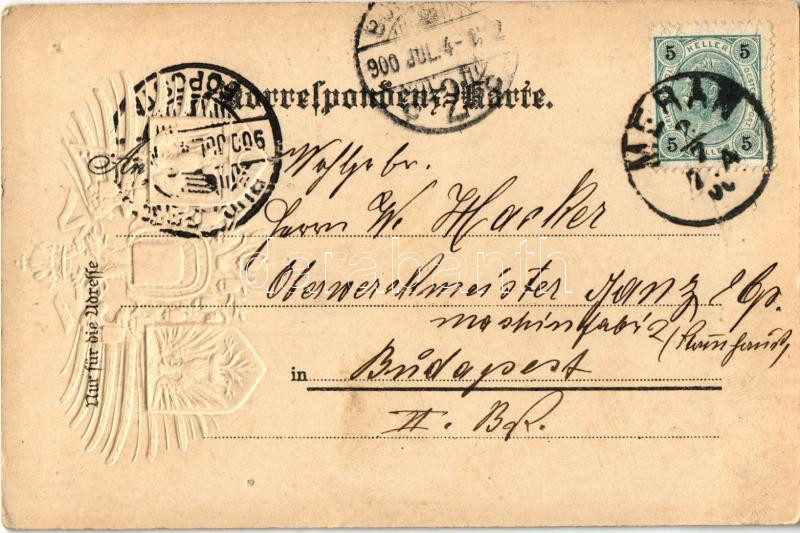 5 HELLER 5
5 HELLER 5
MERAN
900 JUL. 4-
Correspondenz-Karte.
900 JUL
An Wohlgebr.
Herrn W. Hacker
Oberwerkmeister Ganz & Cp.
Maschinenfabrik
in Budapest
II. BR.
Nur für die Adresse
darabanth